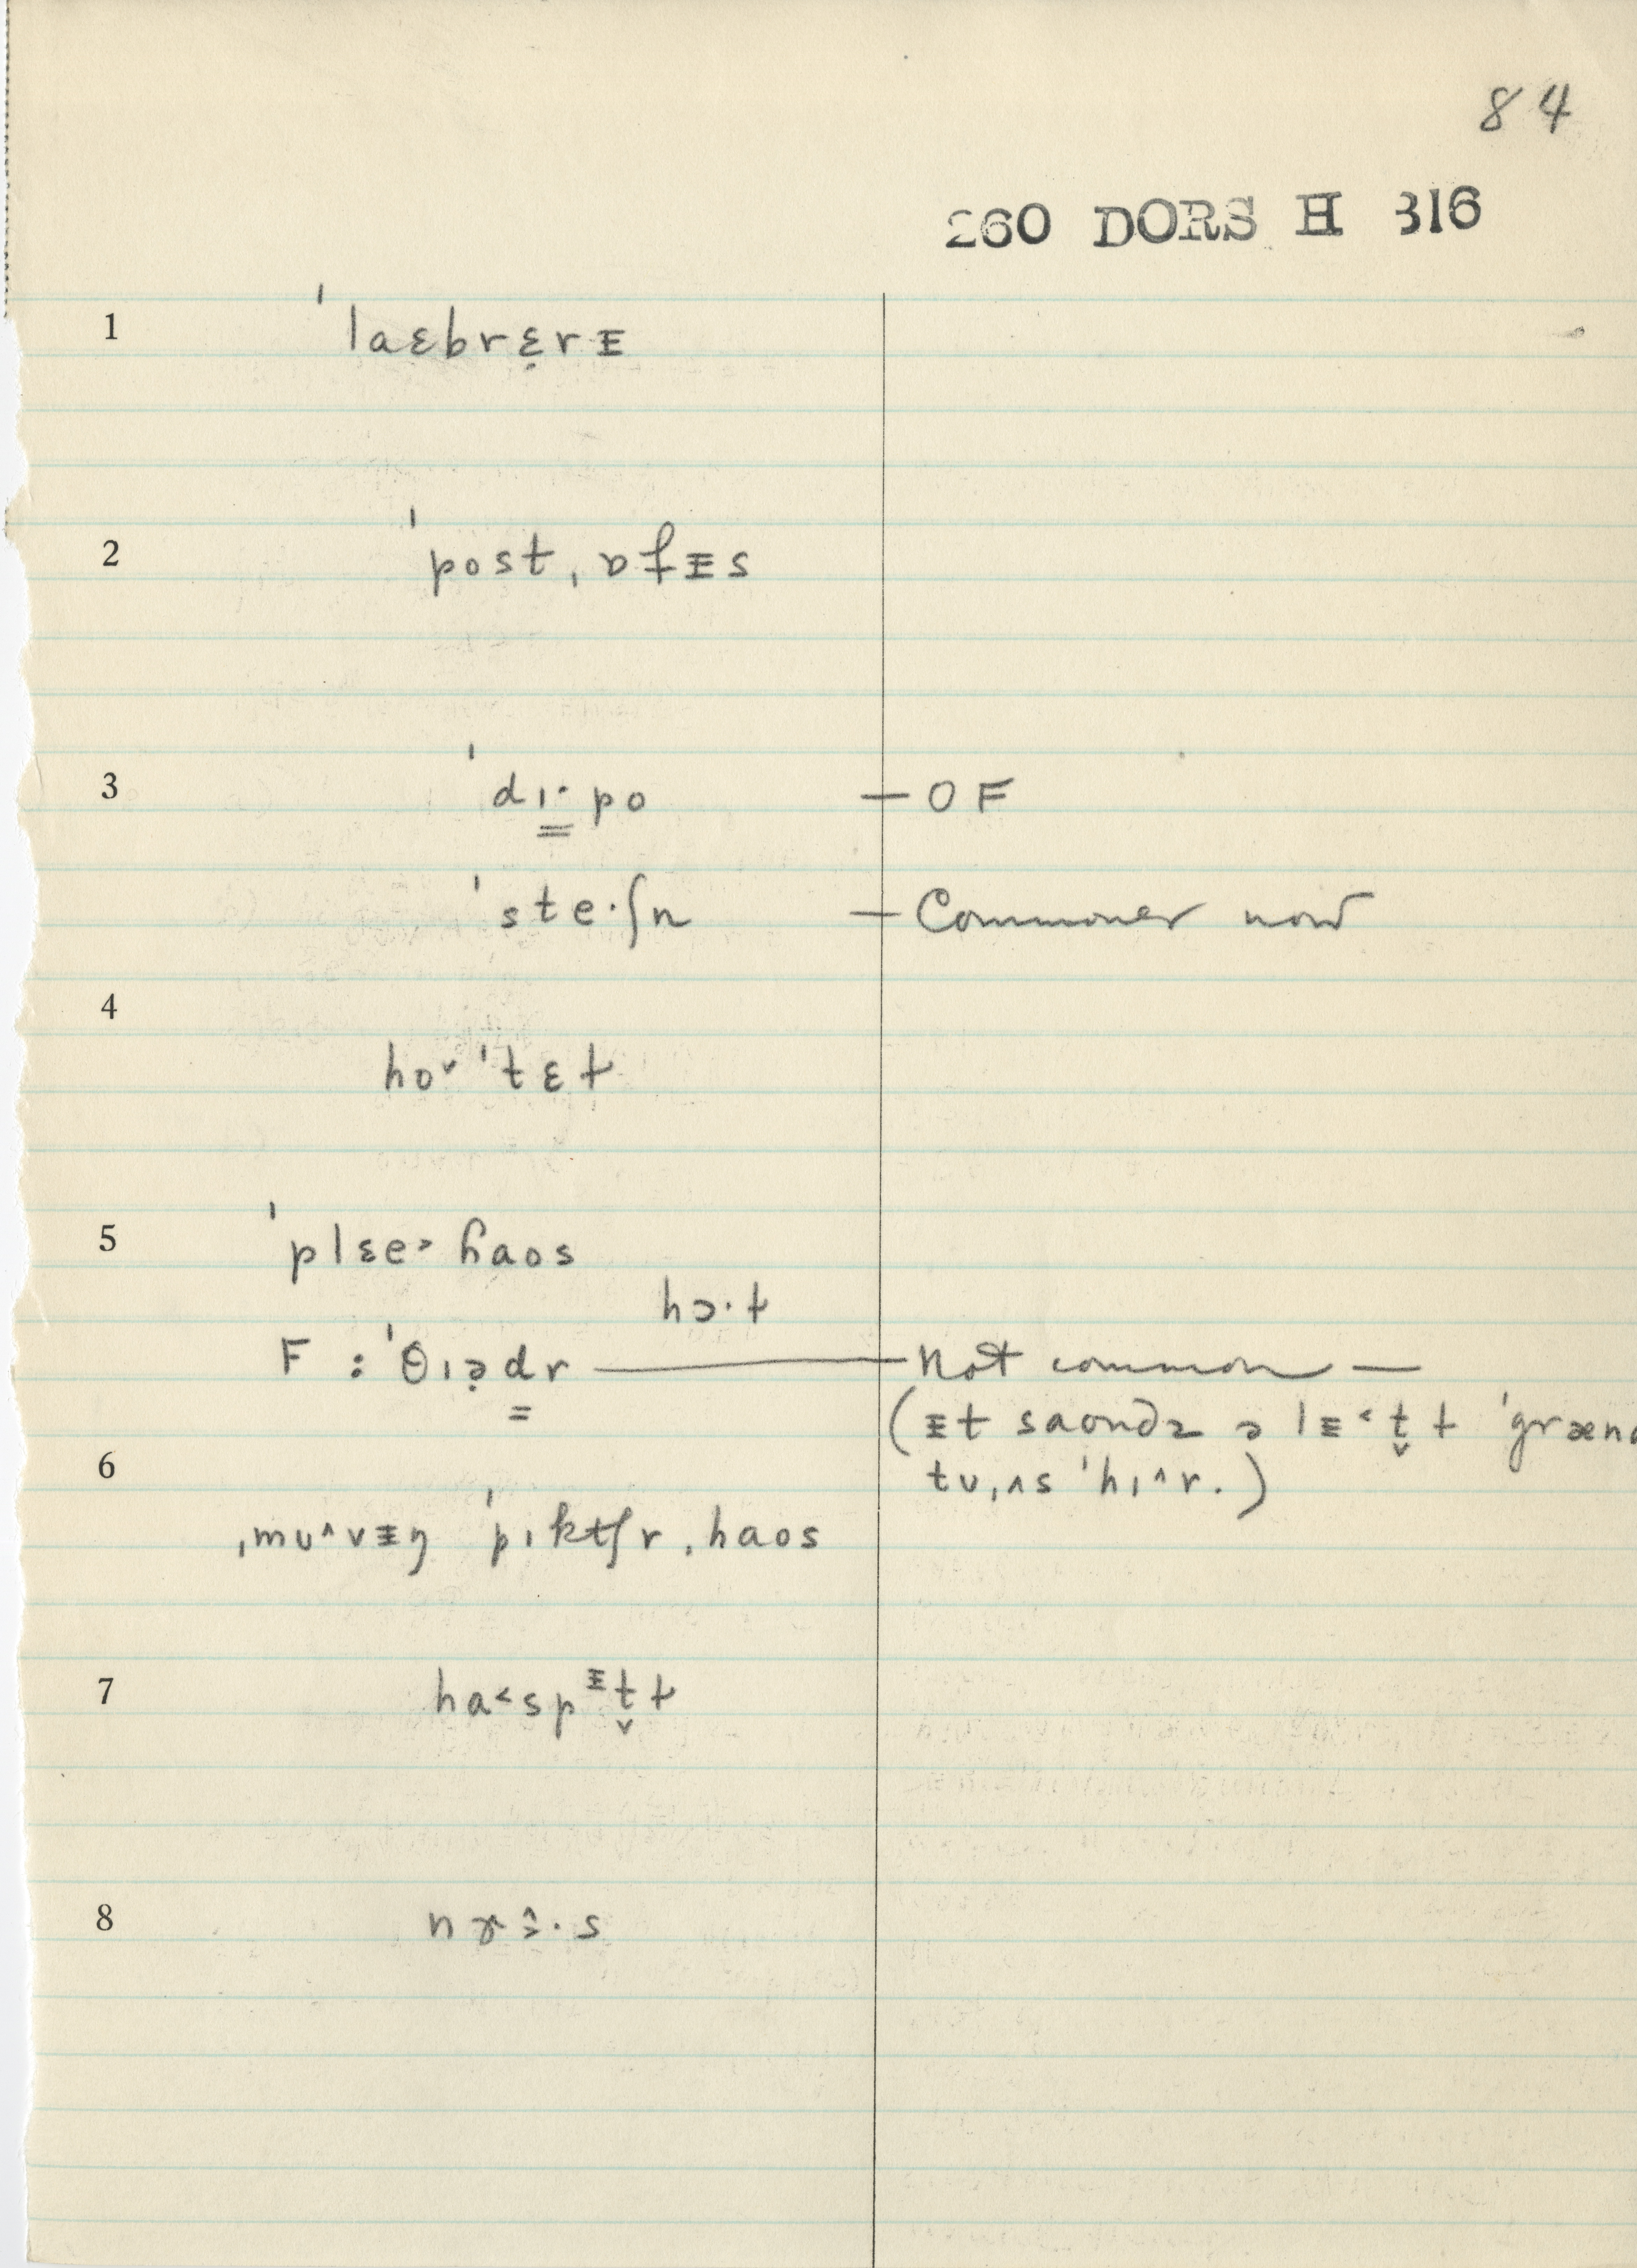 84
260 DORS H 316
1 ˈlaɛbrɛ̣rᵻ
2 ˈpostˌɒfᵻs
3 ˈd ɪ· po — OF
ˈste·ʃn — Commoner now
4
ho˅ ˈtɛɫ
5 ˈplɛe˃ ɦaos
hɔ·ɫ
F : ˈθɪə̣dr — Not common —
(ᵻt saondz ə lᵻ˂t̬ɫ ˈgræn
6
tʊˌʌs ˈhɪ˄r.)
ˌmʊ˄vᵻŋ ˈpɪktʃrˌhaos
7 ha˂spᵻt̬ɫ
8 nɝ·s